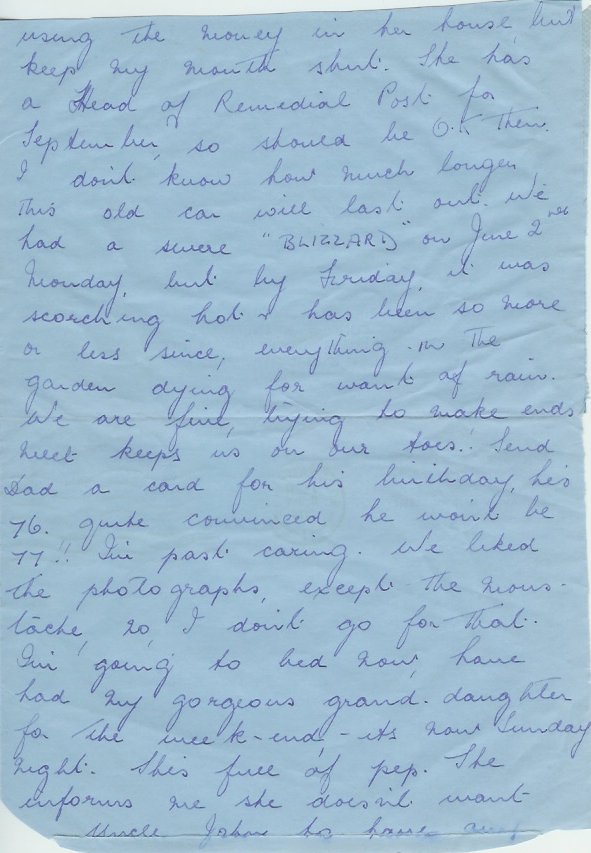 using the money in her house, but
keep my mouth shut. She has
a Head of Remedial Post for
September, so should be O.K then.
I don't know how much longer
this old car will last out. We
had a severe "BLIZZARD" on June 2nd
Monday, but by Friday, it was
scorching hot & has been so more
or less since, everything in the
garden dying for want of rain.
We are fine, trying to make ends
meet keeps us on our toes! Send
Dad a card for his birthday, he's
76. quite convinced he won't be
77!! I'm past caring. We liked
the photographs, except the mous-
tache, no, I don't go for that.
I'm going to bed now, have
had my gorgeous grand-daughter
for the week-end, - its now Sunday
night. She's full of pep. She
informs me she doesn't want
Uncle John to have any